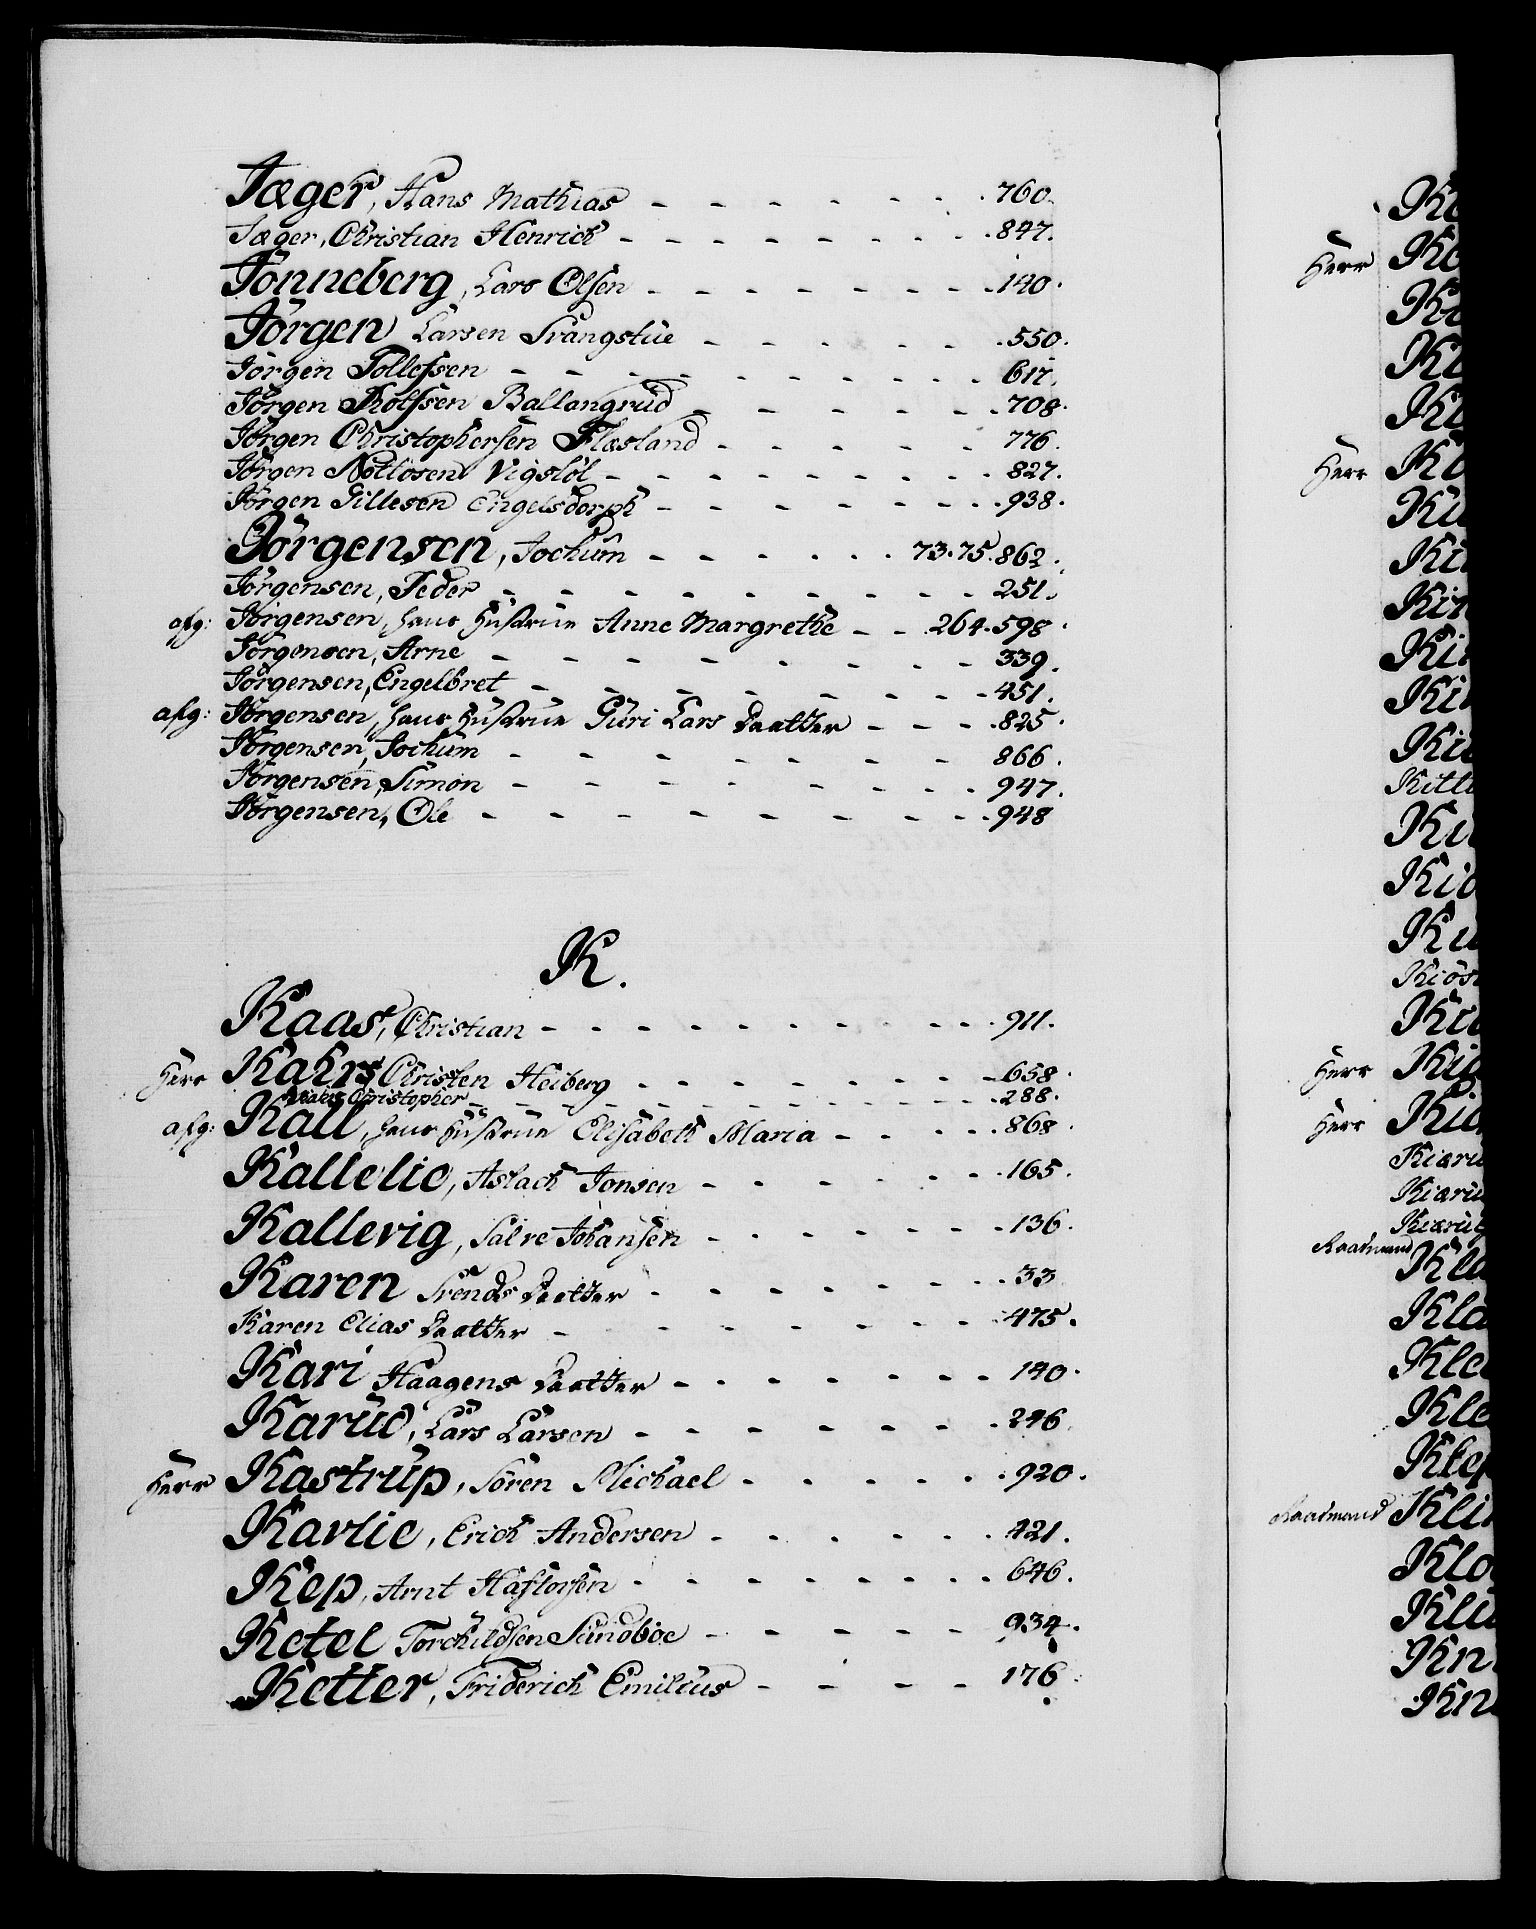 Jæger, Hans Mathias - - - - - - - 760.
Jæger, Christian Henrich - - - - - - - - 847.
Jönneberg, Lars Olsen - - - - - - - - 140.
Jörgen Larsen Svangstüe - - - - - - 550.
Jörgen Tollefsen - - - - - - - - - 617.
Jörgen Rolfsen Ballangrud - - - - - - 708.
Jörgen Christophersen Flæsland - - - - - 776.
Jörgen Nottosen Vigsløl - - - - - - - - 827.
Jörgen Gillesen Engelsdorph - - - - - - - 938.
Jörgensen, Jochum - - - - - - 73.75.862.
Jörgensen, Peder - - - - - - - - 251.
afg: Jörgensen, hans Hüstrue Anne Margrethe - - 264.598.
Jörgensen, Arne - - - - - - - - 339.
Jörgensen, Engelbret - - - - - - - 451.
afg: Jörgensen, hans Hüstrue Güri Lars Daatter - - - 825.
Jörgensen, Jochum - - - - - - - 866.
Jörgensen, Simon - - - - - - - - 947.
Jörgensen, Ole - - - - - - - - 948
K.
Kaas, Christian - - - - - - - - - - 911.
Herr Kahrs, Christen Heiberg - - - - - - - - 658.
Kahrs Christopher - - - - - - - - - - 288.
afg: Kall, hans Hüstrue Elisabeth Maria - - - - 868.
Kallelie, Aslach Jonsen - - - - - - - 165.
Kallevig, Salve Johansen - - - - - - - 136.
Karen Svends Daatter - - - - - - - 33
Karen Elias Daatter - - - - - - - 475.
Kari Haagens Daatter - - - - - - - 140.
Karüd, Lars Larsen - - - - - - - 246.
Herr Kastrüp, Sören Michael - - - - - - 920.
Kavlie, Erich Andersen - - - - - - - 421.
Kep, Arnt Haflorsen - - - - - - - - 646.
Ketel Torchildsen Sundboe - - - - - 934.
Ketter, Friderich Emilius - - - - 176.
Herr
Herr
Herr
Herr
Raadmand
Raadmand